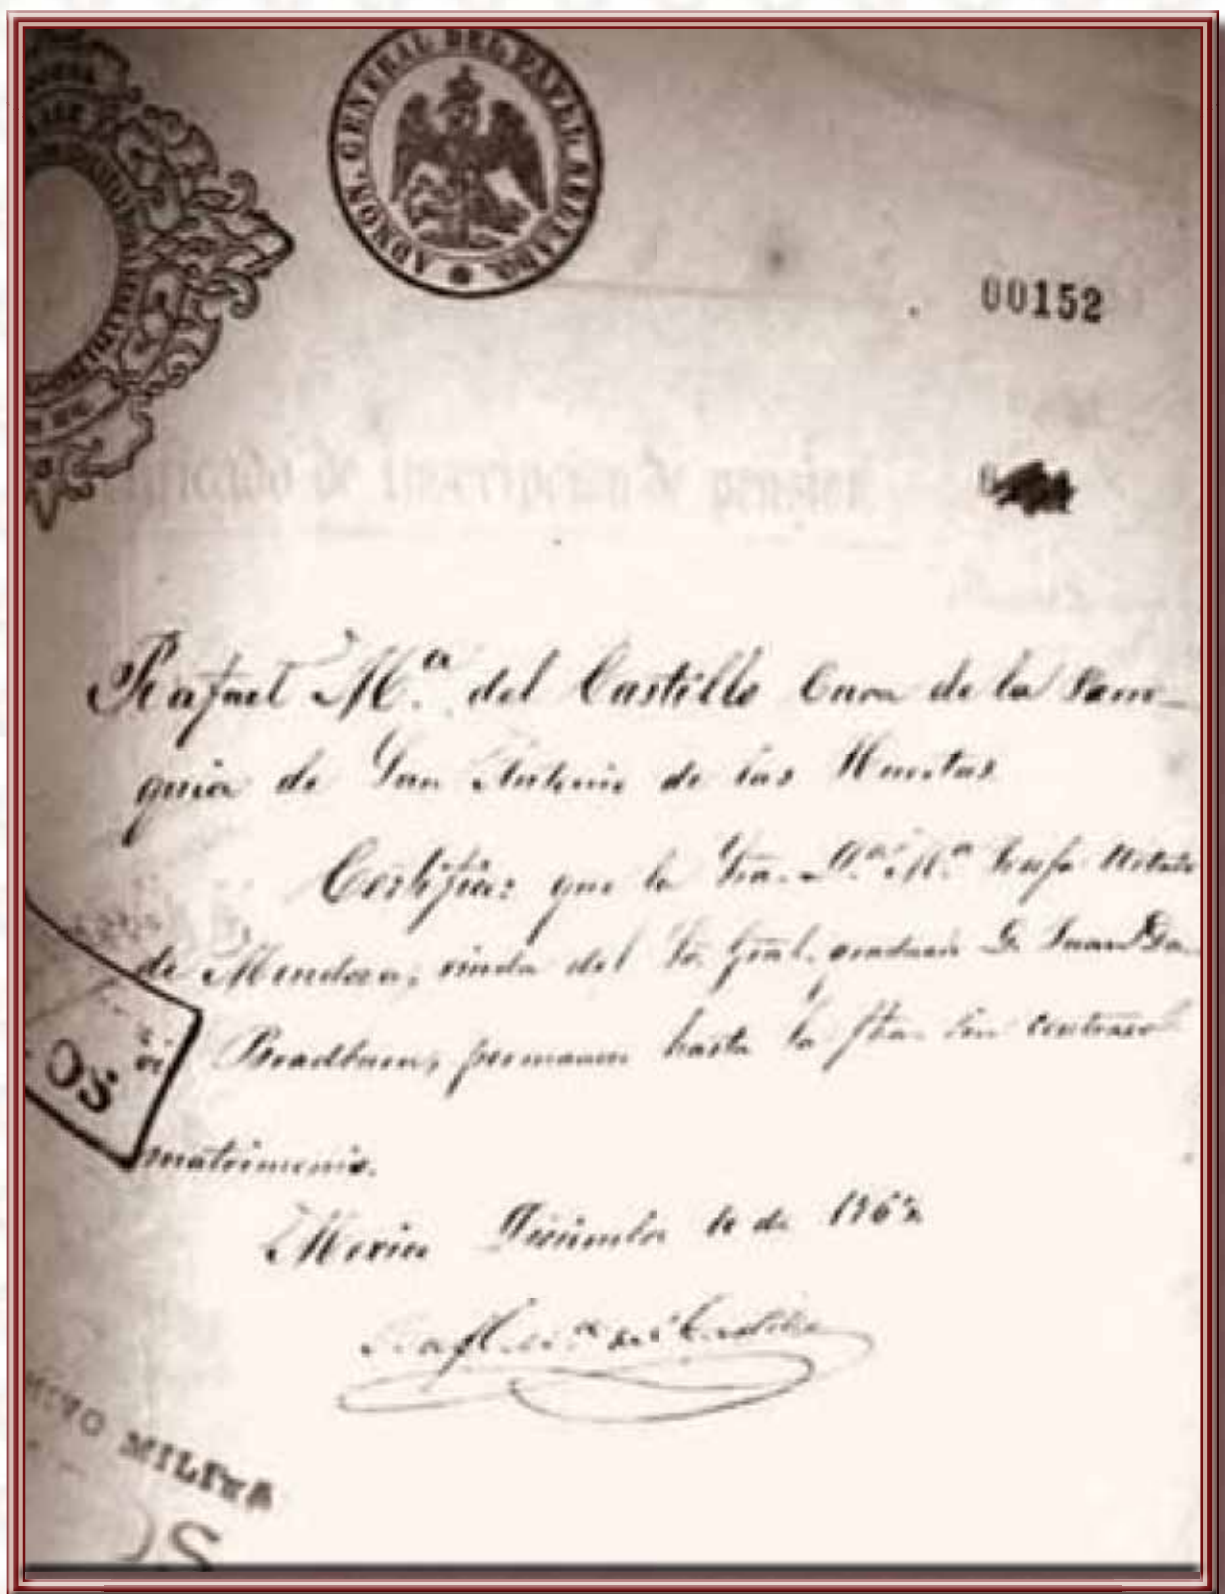 ADMON. GENERAL DEL PAPEL SELLADO
00152
tificado de inscripcion de pension
Rafael M.ª del Castillo Cura de la Parro-
quia de San Antonio de las Huertas
Certifica: que la Sra. D.ª M.ª Josefa Hurtado
de Mendoza, viuda del Sr. Gral. graduado D. Juan Da-
vi
Bradburn, permanece hasta la fha. sin contraer
matrimonio.
OS
Mexico Diciembre 10 de 186
Raf. M.ª del Castillo
MILITA
OS